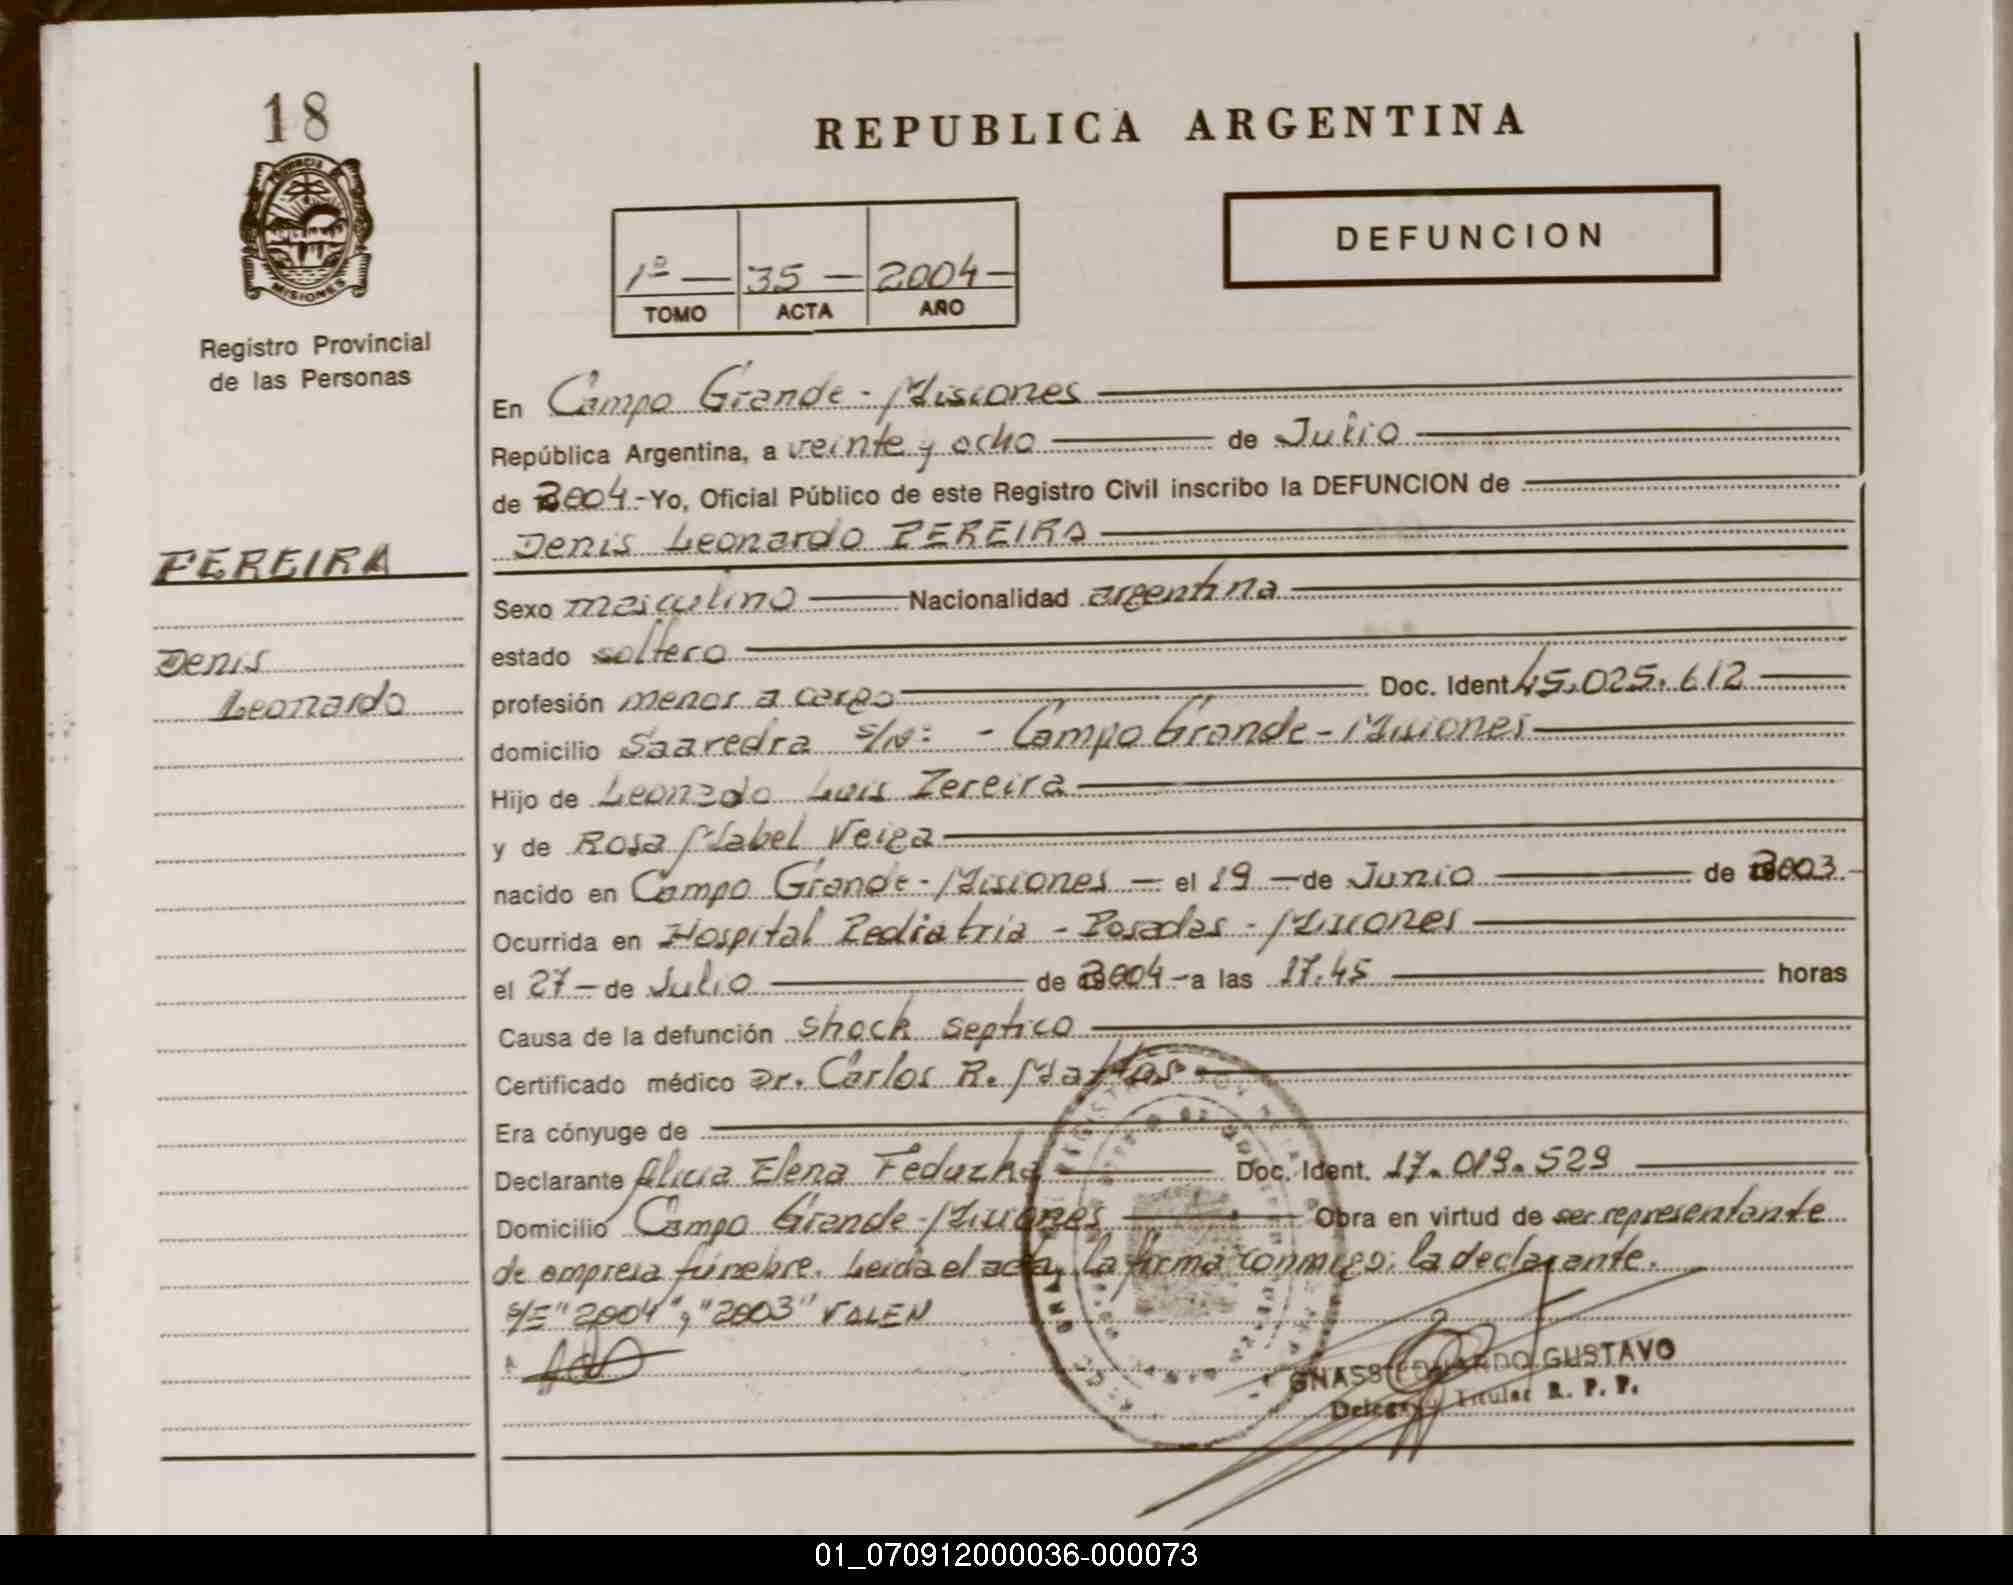 18
PROVINCIA
MISIONES
Registro Provincial
de las Personas
REPUBLICA ARGENTINA
DEFUNCION
1º — 35 — 2004 —
TOMO ACTA AÑO
En Campo Grande - Misiones
República Argentina, a veinte y ocho de Julio
de 2004.- Yo, Oficial Público de este Registro Civil inscribo la DEFUNCION de
Denis Leonardo PEREIRA
PEREIRA
Denis
Leonardo
Sexo masculino Nacionalidad argentina
estado soltero
profesión menor a cargo Doc. Ident. 45.025.612
domicilio Saavedra s/Nº: - Campo Grande - Misiones
Hijo de Leonado Luis Pereira
y de Rosa Mabel Veiga
nacido en Campo Grande - Misiones — el 19 — de Junio de 2003.-
Ocurrida en Hospital Pediatria - Posadas - Misiones
el 27 — de Julio de 2004 - a las 17.45 horas
Causa de la defunción shock septico
Certificado médico Dr. Carlos R. Mattos
Era cónyuge de
Declarante Alicia Elena Doc. Ident. 17.019.529
Domicilio Campo Grande - Misiones Obra en virtud de ser representante
de empresa fúnebre. Leida el acta, la firma conmigo; la declarante.
S/E "2004", "2003" VALEN
GNASS GUSTAVO
Titular R. P. P.
01_070912000036-000073